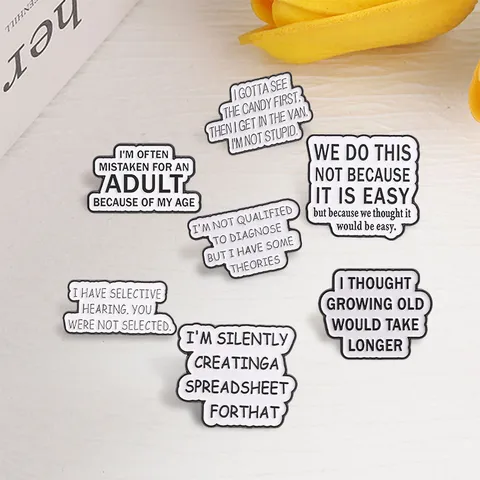 her
I GOTTA SEE
THE CANDY FIRST.
THEN I GET IN THE VAN.
I'M NOT STUPID.
I'M OFTEN
MISTAKEN FOR AN
ADULT
BECAUSE OF MY AGE
WE DO THIS
NOT BECAUSE
IT IS EASY
but because we thought it
would be easy.
I'M NOT QUALIFIED
TO DIAGNOSE
BUT I HAVE SOME
THEORIES
I HAVE SELECTIVE
HEARING. YOU
WERE NOT SELECTED.
I THOUGHT
GROWING OLD
WOULD TAKE
LONGER
I'M SILENTLY
CREATINGA
SPREADSHEET
FORTHAT